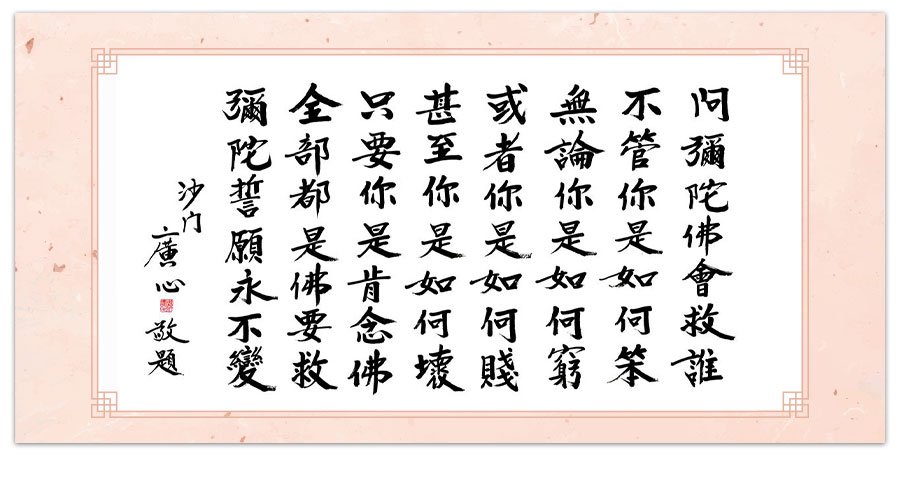 問彌陀佛會救誰
不管你是如何笨
無論你是如何窮
或者你是如何賤
甚至你是如何壞
只要你是肯念佛
全部都是佛要救
彌陀誓願永不變
沙门广廣心敬題